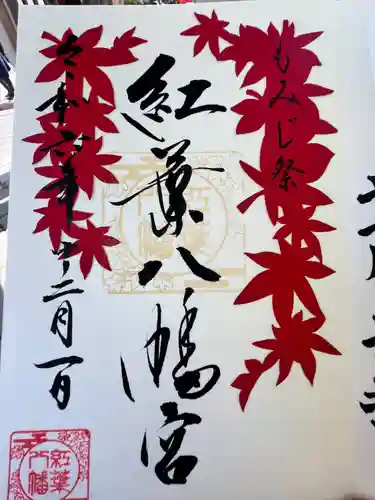 もみじ祭
紅葉八幡宮
令和六年十二月一日
紅葉
八幡